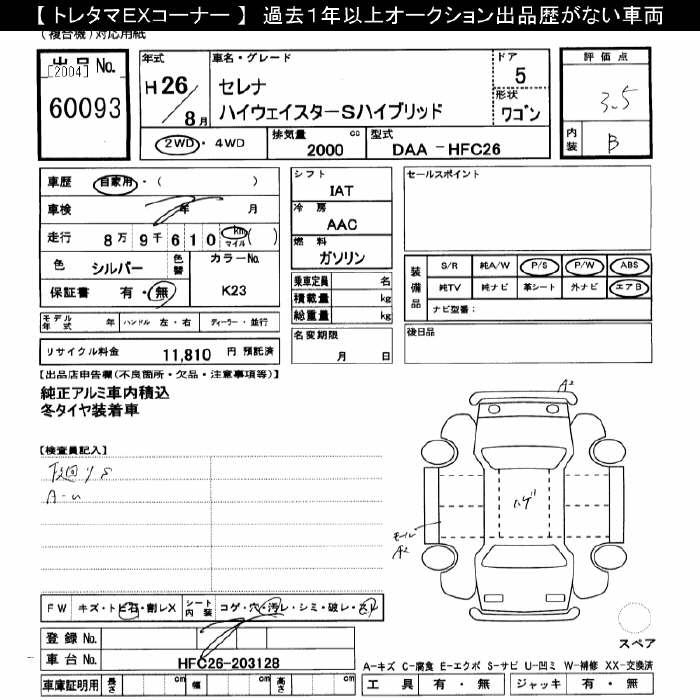 【 トレタマEXコーナー 】 過去１年以上オークション出品歴がない車両
(複合機)対応用紙
出品 No.
[2004]
60093
年式
H 26 / 8 月
車名・グレード
セレナ
ハイウェイスターSハイブリッド
ドア
5
形状
ワゴン
評価点
3.5
内装
B
2WD・4WD
排気量 cc
2000
型式
DAA -HFC26
車歴 自家用・( )
車検 年 月
走行 8万 9千 6 1 0 km マイル ( )
色 シルバー 色替
カラーNo.
K23
保証書 有・無
シフト
IAT
冷房
AAC
燃料
ガソリン
乗車定員 名
積載量 kg
総重量 kg
セールスポイント
装備品
S/R 純A/W P/S P/W ABS
純TV 純ナビ 革シート 外ナビ エアB
ナビ型番：
モデル年式 年 ハンドル 左・右 ディーラー・並行
名変期限
月 日
後日品
リサイクル料金 11,810 円 預託済
【出品店申告欄(不良箇所・欠品・注意事項等)】
純正アルミ車内積込
冬タイヤ装着車
【検査員記入】
下廻りS
A-U
A2
ハゲ
モール
A2
FW キズ・トビ石・割レX シート内装 コゲ・穴・汚レ・シミ・破レ・
スペア
登録 No.
車台 No. HFC26-203128
A-キズ C-腐食 E-エクボ S-サビ U-凹ミ W-補修 XX-交換済
車庫証明用 長さ cm 幅 cm 高さ cm
工具 有・無 ジャッキ 有・無